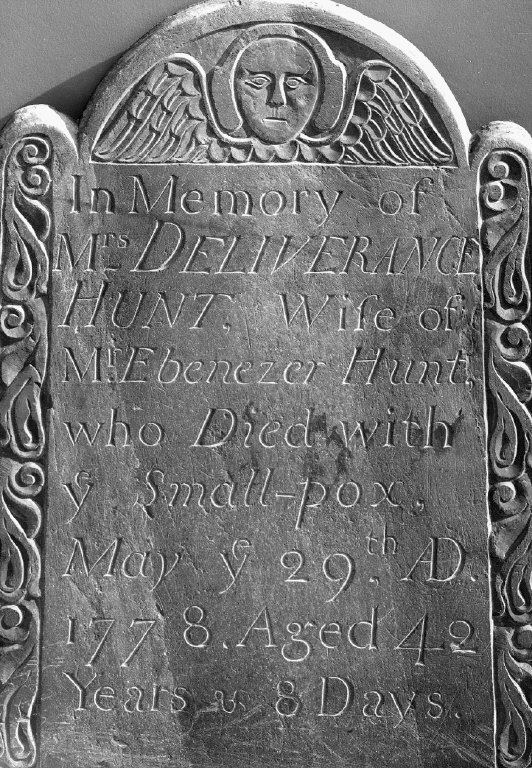 In Memory of
Mrs DELIVERANCE
HUNT, Wife of
Mr Ebenezer Hunt,
who Died with
ye Small-pox,
May ye 29th, AD.
1778. Aged 42
Years & 8 Days.